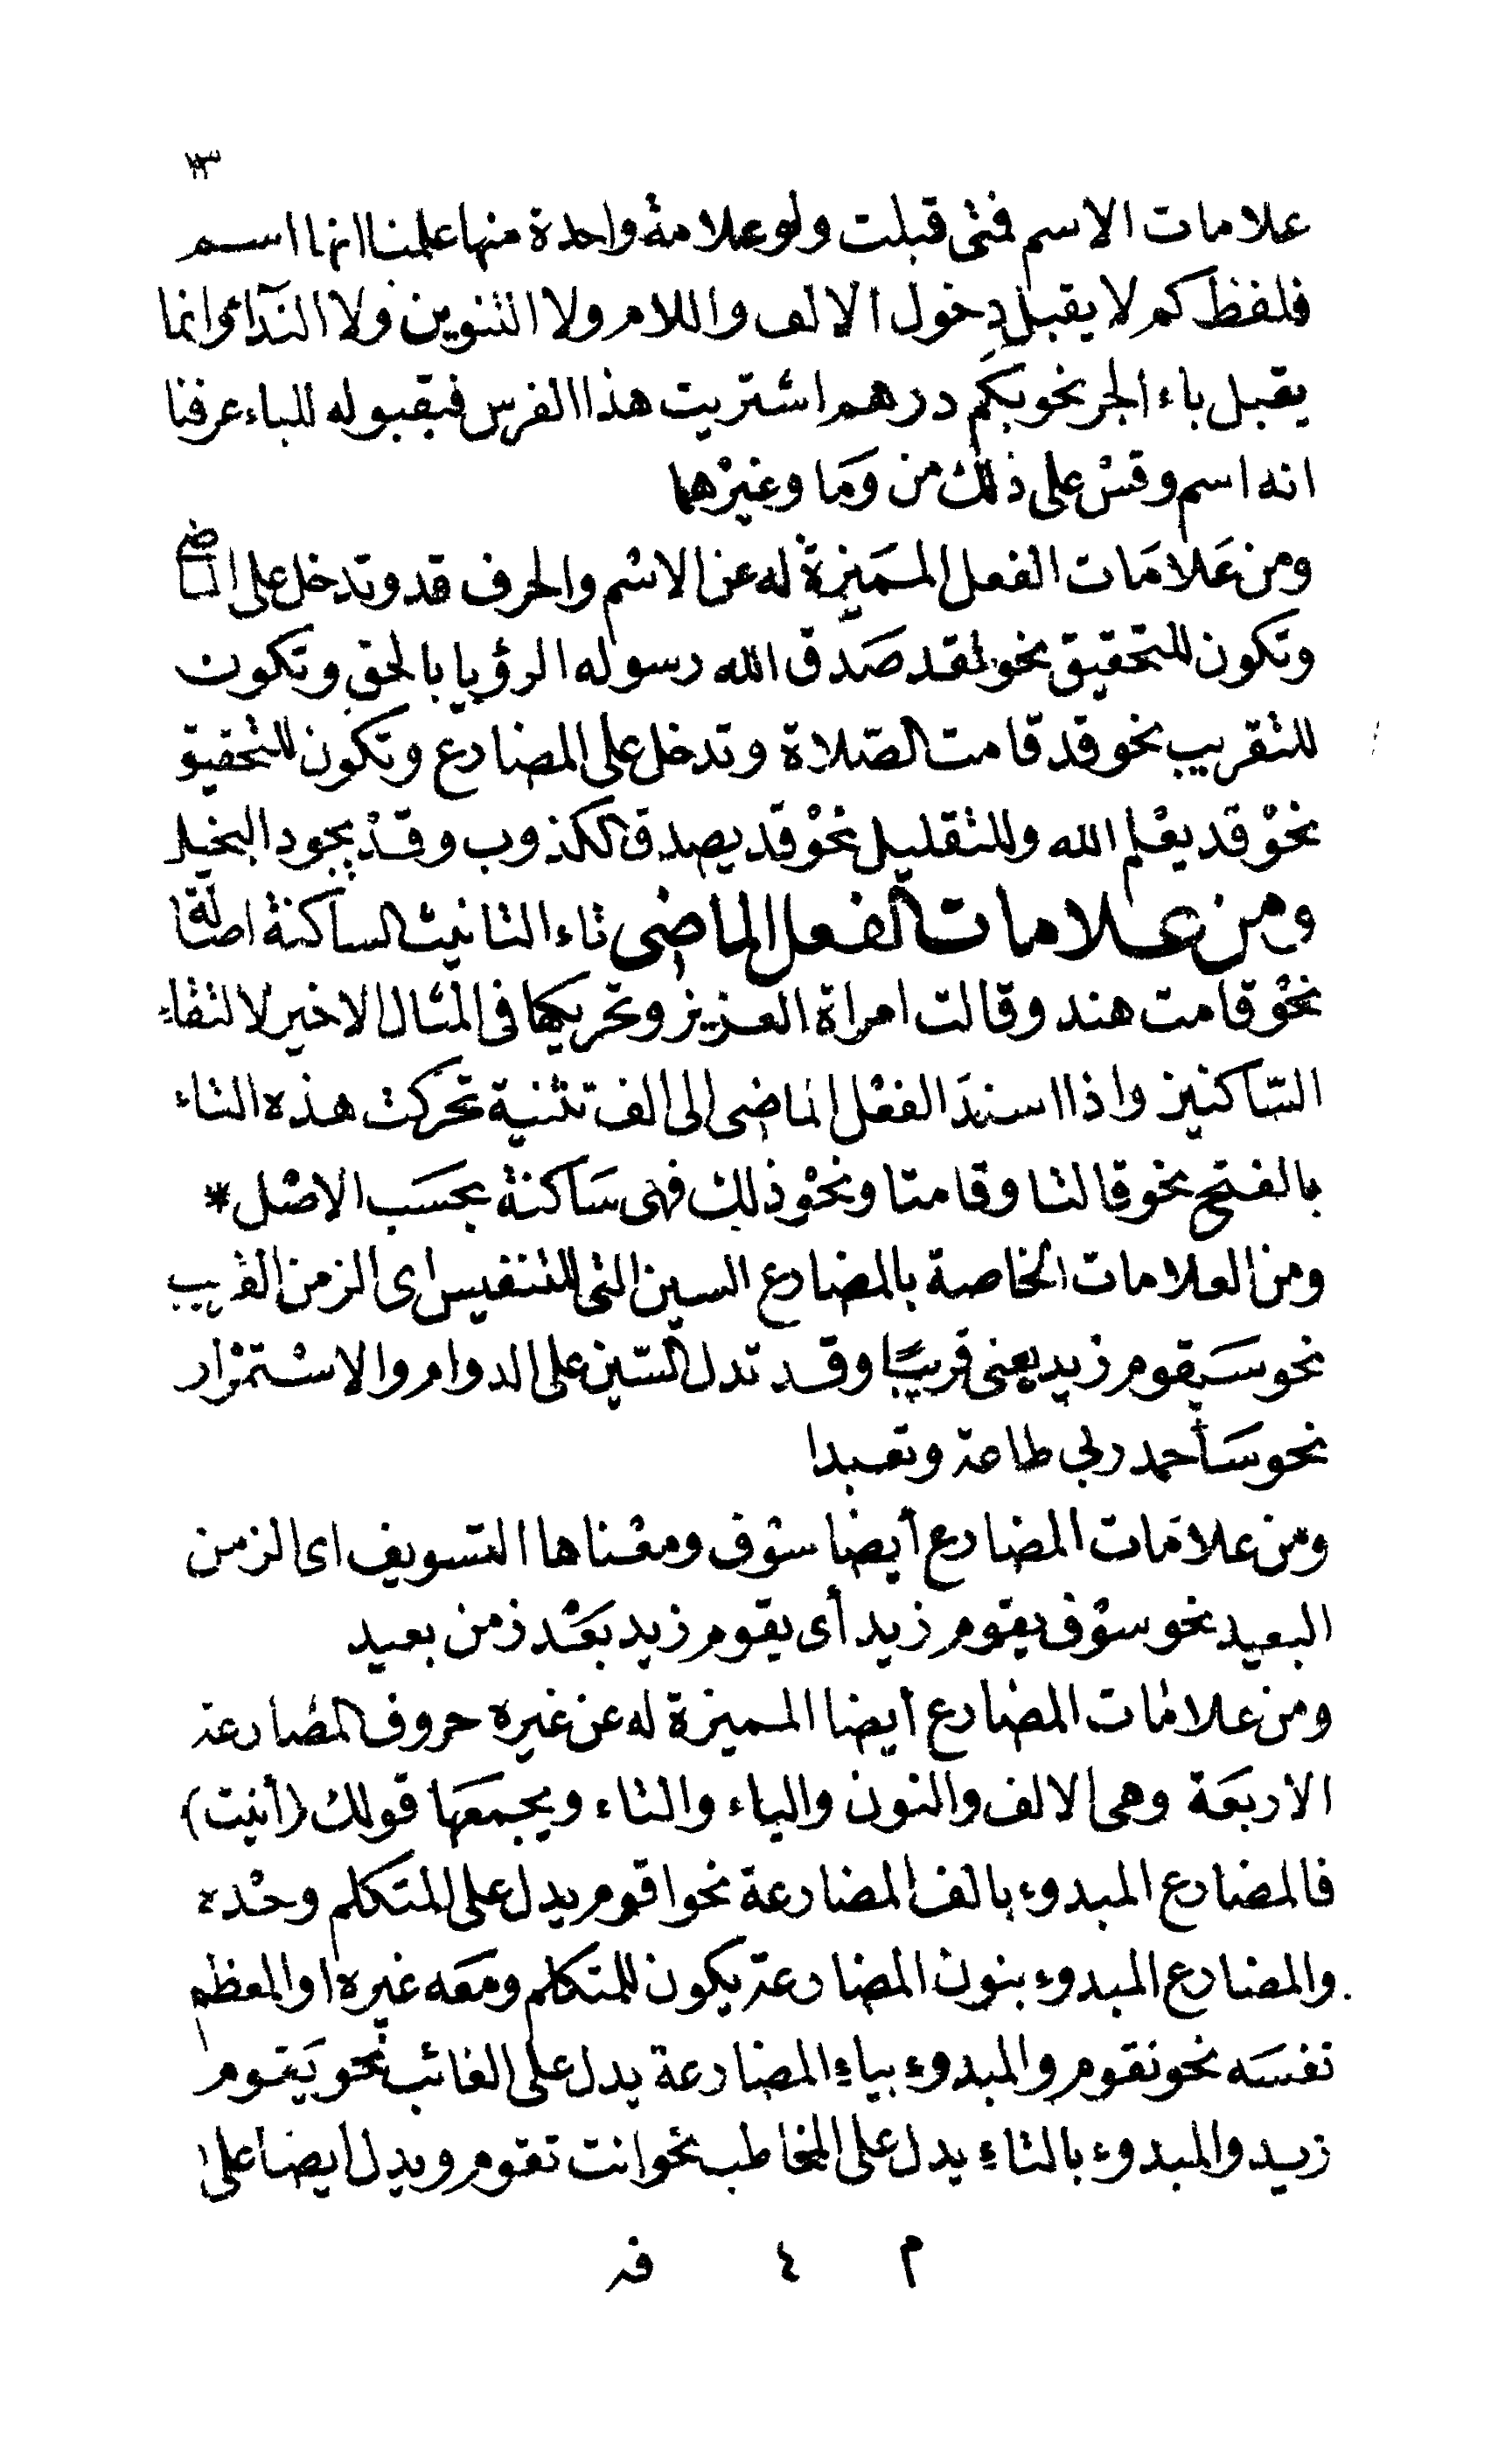 ١٣
علامات الاسم فمتى قبلت ولو علامة واحدة منها علمنا انها اسم
فلفظ كم لا يقبل دخول الالف واللام ولا التنوين ولا الندآء وانما
يقبل باء الجر نحو بكم درهم اشتريت هذا الفرس فبقبوله للباء عرفنا
انه اسم وقسْ على ذلك من وَما وغيرْهما
ومن عَلامَات الفعل المميزة له عن الاسْم والحرف قد وتدخل على الماضى
وتكون للتحقيق نحو لقد صَدق الله رسوله الرؤيا بالحق وتكون
للتقريب نحو قد قامت الصّلاة وتدخل على المضارع وتكون للتحقيق
نحوْ قد يعْلم الله وللتقليل نحوْ قد يصدق الكذوب وقدْ يجود البخيل
ومن علامات الفعل الماضى تاء التانيث الساكنة اصالة
نحوْ قامت هند وقالت امراة العزيز وتحريكها فى المثال الاخير لالتقاء
السّاكنين واذا اسندَ الفعْل الماضى الى الف تثنية تحركت هذه التاء
بالفتح نحو قالتا وقامتا ونحوْ ذلك فهى سَاكنة بحسَب الاصْل *
ومن العلامات الخاصة بالمضارع السين التى للتنفيس اى الزمن القريب
نحو سَيقوم زيد يعنى قريبًا وقد تدل السّين على الدوام والاسْتمرْار
نحو سَأحمد ربى طاعة وتعبدا
ومن علامَات المضارع أيضا سوْف ومعْناها التسويف اى الزمن
البعيد نحو سوْف يقوم زيد أى يقوم زيد بَعْد زمن بعيد
ومن علامات المضارع أيضا المميزة له عن غيره حروف المضارعة
الاربعَة وهى الالف والنون والياء والتاء ويجمعَها قولك (أنيت)
فالمضارع المبدوء بالف المضارعة نحو اقوم يدل على المتكلم وحْده
والمضارع المبدوء بنون المضارعة يكون للمتكلم ومعَه غيره او المعظم
نفسَه نحو نقوم والمبدوء بياء المضارعة يدل على الغائب نحو يَقوم
زيد والمبدوء بالتاء يدل على المخاطب نحو انت تقوم ويدل ايضا على
م ٤ فـ